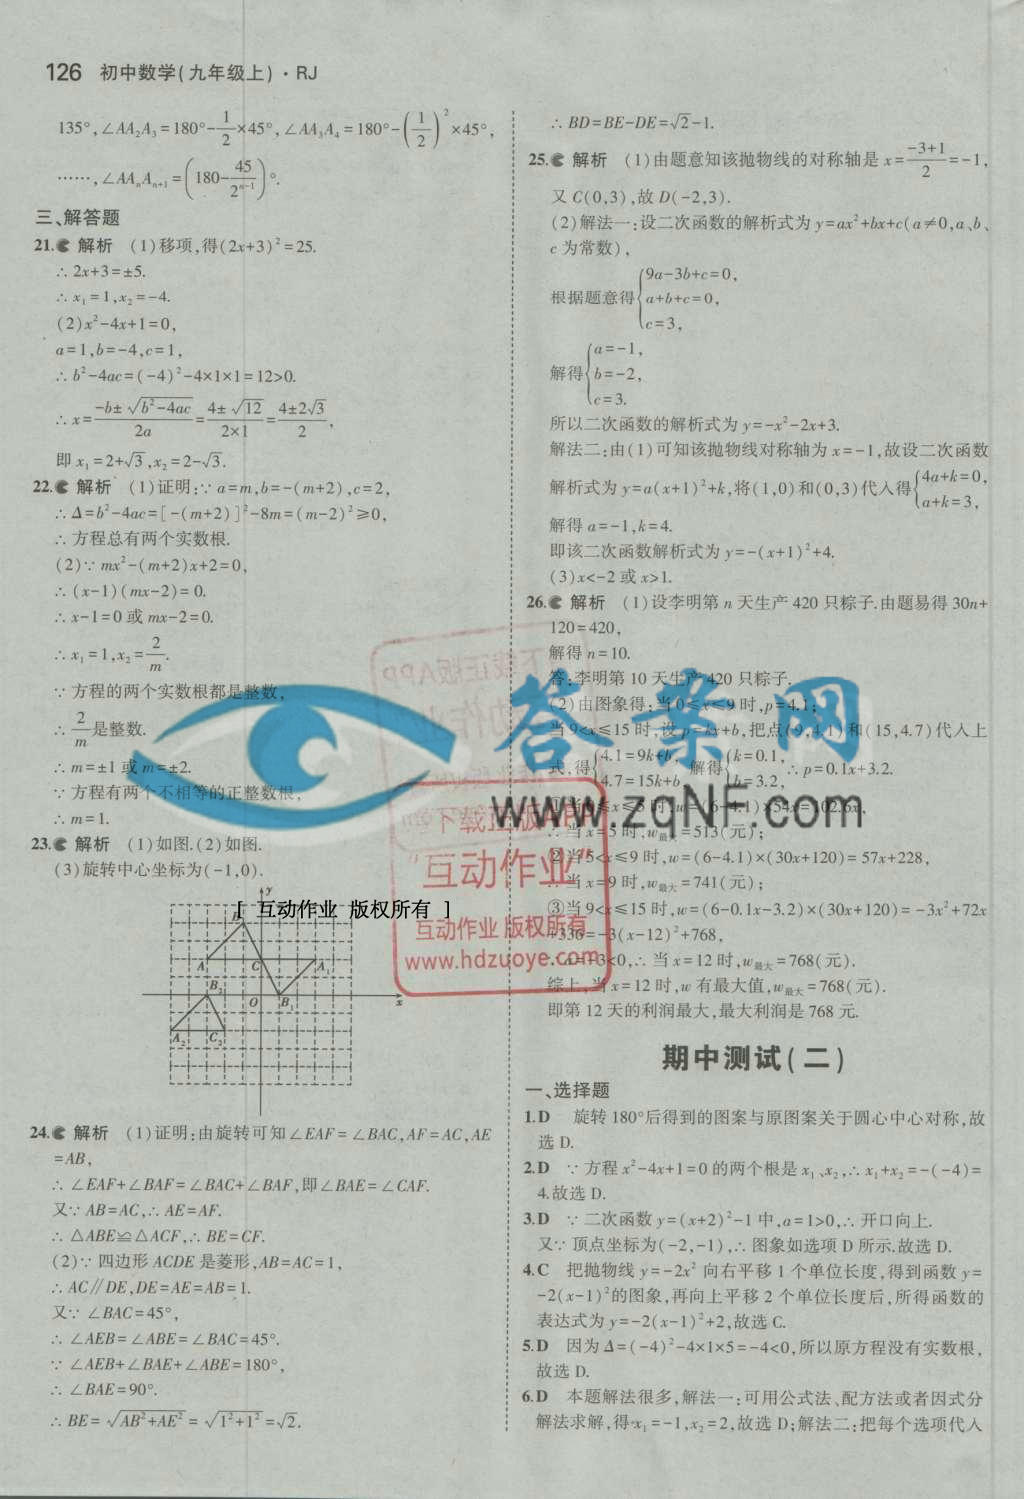 126 初中数学(九年级上)·RJ
135°,∠AA₂A₃=180°-1/2×45°,∠AA₃A₄=180°-(1/2)²×45°,
……,∠AAₙAₙ₊₁=(180-45/2ⁿ⁻¹)°.
三、解答题
21. 解析 (1)移项,得(2x+3)²=25.
∴2x+3=±5.
∴x₁=1,x₂=-4.
(2)x²-4x+1=0,
a=1,b=-4,c=1,
∴b²-4ac=(-4)²-4×1×1=12>0.
∴x=(-b±√(b²-4ac))/2a=(4±√12)/(2×1)=(4±2√3)/2,
即x₁=2+√3,x₂=2-√3.
22. 解析 (1)证明:∵a=m,b=-(m+2),c=2,
∴Δ=b²-4ac=[-(m+2)]²-8m=(m-2)²≥0,
∴方程总有两个实数根.
(2)∵mx²-(m+2)x+2=0,
∴(x-1)(mx-2)=0.
∴x-1=0或mx-2=0.
∴x₁=1,x₂=2/m.
∵方程的两个实数根都是整数,
∴2/m是整数.
∴m=±1或m=±2.
∵方程有两个不相等的正整数根,
∴m=1.
23. 解析 (1)如图.(2)如图.
(3)旋转中心坐标为(-1,0).
y
[ 互动作业 版权所有 ]
B
A C A₁
B₂ O B₁ x
A₂ C₂
24. 解析 (1)证明:由旋转可知∠EAF=∠BAC,AF=AC,AE
=AB,
∴∠EAF+∠BAF=∠BAC+∠BAF,即∠BAE=∠CAF.
又∵AB=AC,∴AE=AF.
∴△ABE≌△ACF,∴BE=CF.
(2)∵四边形ACDE是菱形,AB=AC=1,
∴AC∥DE,DE=AE=AB=1.
又∵∠BAC=45°,
∴∠AEB=∠ABE=∠BAC=45°.
∵∠AEB+∠BAE+∠ABE=180°,
∴∠BAE=90°.
∴BE=√(AB²+AE²)=√(1²+1²)=√2.
∴BD=BE-DE=√2-1.
25. 解析 (1)由题意知该抛物线的对称轴是x=(-3+1)/2=-1,
又C(0,3),故D(-2,3).
(2)解法一:设二次函数的解析式为y=ax²+bx+c(a≠0,a、b、
c为常数),
根据题意得{9a-3b+c=0,
a+b+c=0,
c=3,
解得{a=-1,
b=-2,
c=3.
所以二次函数的解析式为y=-x²-2x+3.
解法二:由(1)可知该抛物线对称轴为x=-1,故设二次函数
解析式为y=a(x+1)²+k,将(1,0)和(0,3)代入得{4a+k=0,
a+k=3,
解得a=-1,k=4.
即该二次函数解析式为y=-(x+1)²+4.
(3)x<-2或x>1.
26. 解析 (1)设李明第n天生产420只粽子.由题易得30n+
120=420,
解得n=10.
答:李明第10天生产420只粽子.
(2)由图象得:当0≤x≤9时,p=4.1;
当9<x≤15时,设p=kx+b,把点(9,4.1)和(15,4.7)代入上
式,得{4.1=9k+b,
4.7=15k+b,解得{k=0.1,
b=3.2,∴p=0.1x+3.2.
①当0≤x≤5时,w=(6-4.1)×54x=102.6x,
∴当x=5时,w最大=513(元);
②当5<x≤9时,w=(6-4.1)×(30x+120)=57x+228,
∴当x=9时,w最大=741(元);
③当9<x≤15时,w=(6-0.1x-3.2)×(30x+120)=-3x²+72x
+336=-3(x-12)²+768,
∵a=-3<0,∴当x=12时,w最大=768(元).
综上,当x=12时,w有最大值,w最大=768(元).
即第12天的利润最大,最大利润是768元.
期中测试(二)
一、选择题
1.D 旋转180°后得到的图案与原图案关于圆心中心对称,故
选D.
2.D ∵方程x²-4x+1=0的两个根是x₁、x₂,∴x₁+x₂=-(-4)=
4.故选D.
3.D ∵二次函数y=(x+2)²-1中,a=1>0,∴开口向上.
又∵顶点坐标为(-2,-1),∴图象如选项D所示.故选D.
4.C 把抛物线y=-2x²向右平移1个单位长度,得到函数y=
-2(x-1)²的图象,再向上平移2个单位长度后,所得函数的
表达式为y=-2(x-1)²+2,故选C.
5.D 因为Δ=(-4)²-4×1×5=-4<0,所以原方程没有实数根,
故选D.
6.D 本题解法很多,解法一:可用公式法、配方法或者因式分
解法求解,得x₁=-1,x₂=2,故选D;解法二:把每个选项代入
答案网
www.zqNF.com
下载正版APP
"互动作业"
互动作业 版权所有
www.hdzuoye.com